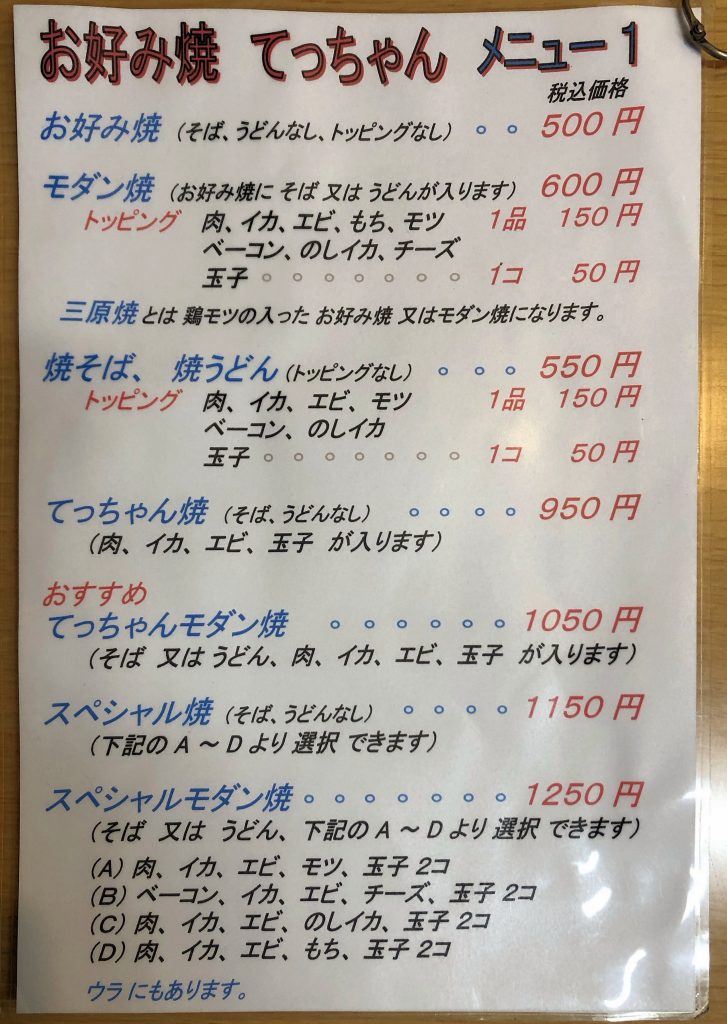 お好み焼 てっちゃん メニュー1
税込価格
お好み焼 (そば、うどんなし、トッピングなし) 。。 500 円
モダン焼 (お好み焼に そば 又は うどんが入ります) 600 円
トッピング 肉、イカ、エビ、もち、モツ 1品 150 円
ベーコン、のしイカ、チーズ
玉子 。。。。。。。 1コ 50 円
三原焼 とは 鶏モツの入った お好み焼 又はモダン焼になります。
焼そば、 焼うどん (トッピングなし) 。。。 550 円
トッピング 肉、イカ、エビ、モツ 1品 150 円
ベーコン、のしイカ
玉子 。。。。。。。 1コ 50 円
てっちゃん焼 (そば、うどんなし) 。。。。 950 円
(肉、イカ、エビ、玉子 が入ります)
おすすめ
てっちゃんモダン焼 。。。。。。 1050 円
(そば 又は うどん、肉、イカ、エビ、玉子 が入ります)
スペシャル焼 (そば、うどんなし) 。。。。 1150 円
(下記の A ～ D より 選択 できます)
スペシャルモダン焼 。。。。。。。 1250 円
(そば 又は うどん、下記の A ～ D より 選択 できます)
(A) 肉、イカ、エビ、モツ、玉子 2コ
(B) ベーコン、イカ、エビ、チーズ、玉子 2コ
(C) 肉、イカ、エビ、のしイカ、玉子 2コ
(D) 肉、イカ、エビ、もち、玉子 2コ
ウラ にもあります。